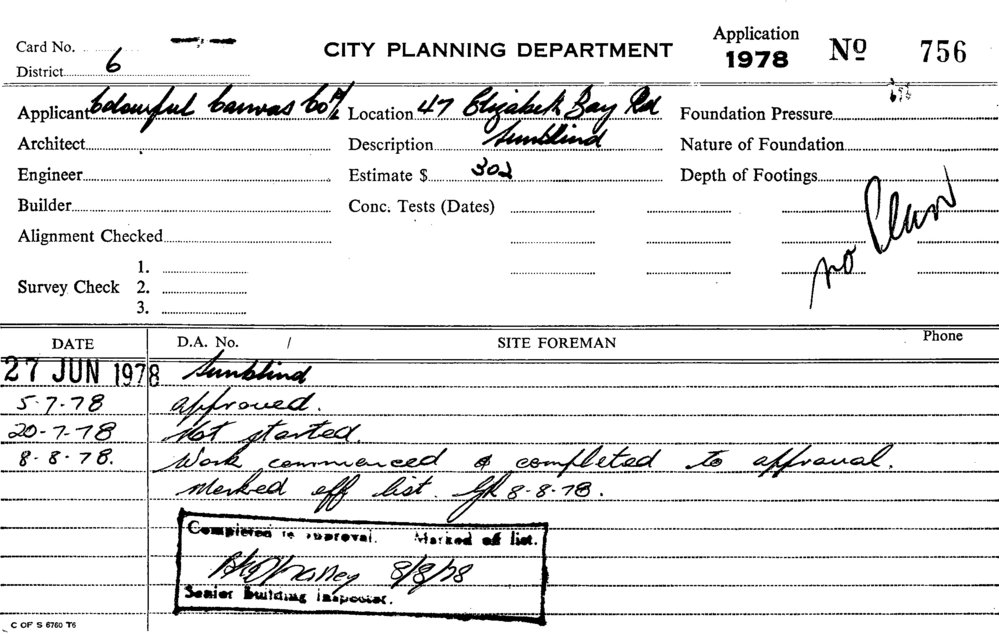 Card No.
CITY PLANNING DEPARTMENT
Application
1978 Nº 756
District 6
Applicant Colourful Canvas Co P/L Location 47 Elizabeth Bay Rd Foundation Pressure
Architect Description Sunblind Nature of Foundation
Engineer Estimate $ 302 Depth of Footings
Builder Conc. Tests (Dates)
no Plan
Alignment Checked
1.
Survey Check 2.
3.
DATE D.A. No. / SITE FOREMAN Phone
27 JUN 1978 Sunblind
5-7-78 approved.
20-7-78 Not started.
8-8-78. Work commenced & completed to approval.
Marked off list. 8-8-78.
Completed to approval. Marked off list.
8/8/78
Senior Building Inspector.
C OF S 6760 T6